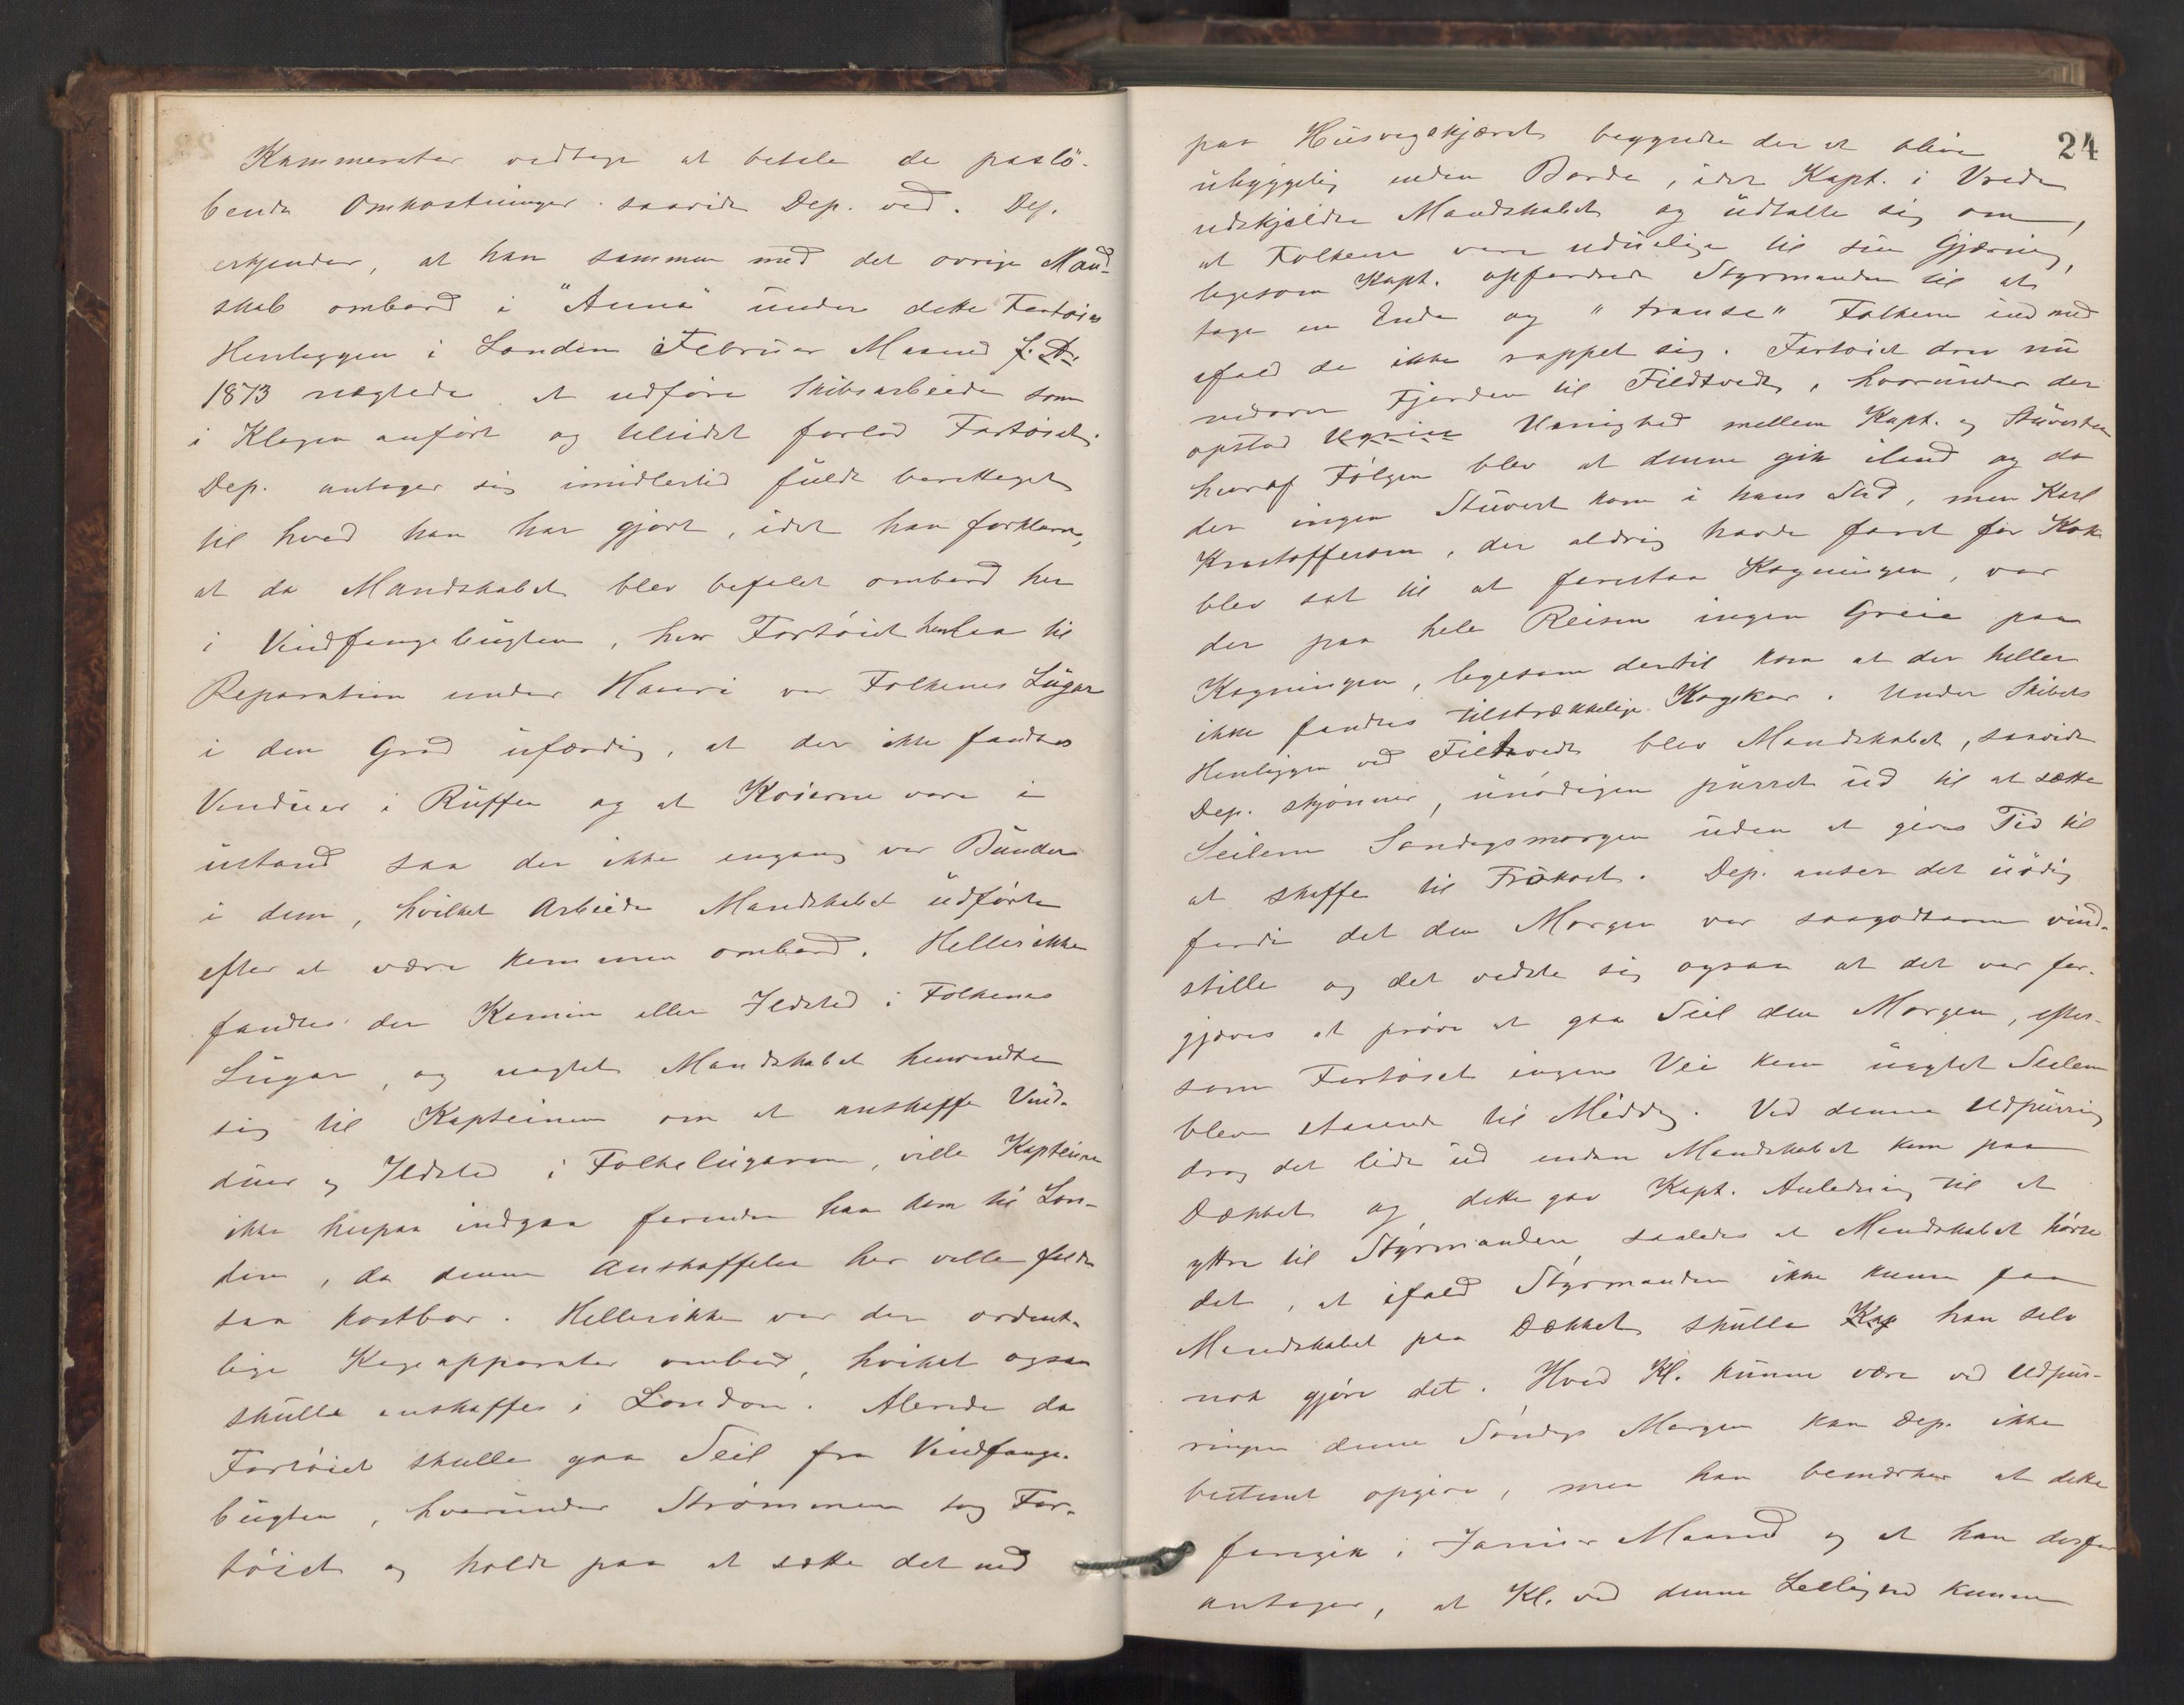 Kammerater vedtage at betale de paalö-
bende Omkostninger saavidt Dep. ved. Dep.
erkjender, at han sammen med det øvrige Mand-
skab ombord i "Anna" under dette Fartøies
Henliggen i London i Februar Maaned
1873 nægtede at udføre Skibsarbeide som
i Klagen anført og tilsidst forlod Fartøiet.
Dep. antager sig imidlertid fuldt berettiget
til hvad han har gjort, idet han forklarer,
at da Mandskabet blev befalet ombord her
i Vindfangebugten, hvor Fartöiet henlaa til
Reparation under Havari var Folkenes Lugar
i den Grad ufærdig, at der ikke fandtes
Vinduer i Ruffen og at Køierne vare i
ustand saa der ikke engang var Bunde
i dem, hvilket Arbeide Mandskabet udførte
efter at være kommen ombord. Hellerikke
fandtes der Kamin eller Ildsted i Folkenes
Lugar, og uagtet Mandskabet henvendte
sig til Kapteinen om at anskaffe Vind-
duer og Ildsted i Folkelugaren, vilde Kapteinen
ikke herpaa indgaa førenden han kom til Lon-
don, da denne Anskaffelse her vilde falde
saa kostbar. Hellerikke var der ordent-
lige Kogeapparater ombord, hvilket ogsaa
skulle anskaffes i London. Allerede da
Fartöiet skulle gaa Seil fra Vindfange-
bugten, hvorunder Strømmen tog Far-
töiet og holdt paa at sætte det ned
24
paa Husvegskjæret begyndte der at blive
uhyggelig inden Borde, idet Kapt. i Vrede
udskjældte Mandskabet og udtalte sig om,
at Folkene vare uduelige til sin Gjærning,
ligesom Kapt. opfordrede Styrmanden til at
tage en Ende og "transe" Folkene ind med
ifald de ikke rappet sig. Fartøiet drev nu
nedover Fjorden til Fildtvedt, hvorunder der
opstod Uenighed mellem Kapt. og Stuerten
hvoraf Følgen blev at denne gik iland og da
der ingen Stuert kom i hans Sted, men Karl
Kristoffersen, der aldrig havde faret før Kok
blev sat til at forestaa Kogningen, var
der paa hele Reisen ingen Greie paa
Kogningen, ligesom dertil kom at der heller
ikke fandtes tilstrækkelige Kogekar. Under Skibets
Henliggen ved Filtvedt blev Mandskabet, saavidt
Dep. skjønner, unødigen purret ud til at sætte
Seilene Søndagsmorgen uden at gives Tid til
at skaffe til Frokost. Dep. anser det unødig
fordi det den Morgen var saagodtsom vind-
stille og det viste sig ogsaa at det var for-
gjæves at prøve at gaa Seil den Morgen, efter-
som Fartøiet ingen Vei kom uagtet Seilene
bleve staaende til Middag. Ved denne Udpurring
drog det lidt ud inden Mandskabet kom paa
Dækket og dette gav Kapt. Anledning til at
yttre til Styrmanden, saaledes at Mandskabet hørte
det, at ifald Styrmanden ikke kunne faa
Mandskabet paa Dækket skulle Kap han selv
nok gjøre det. Hvad Kl. kunne være ved Udpur-
ringen denne Søndags Morgen kan Dep. ikke
bestemt opgive, men han bemærker at dette
foregik i Januar Maaned og at han derfor
antager, at Kl. ved denne Leilighed kunne